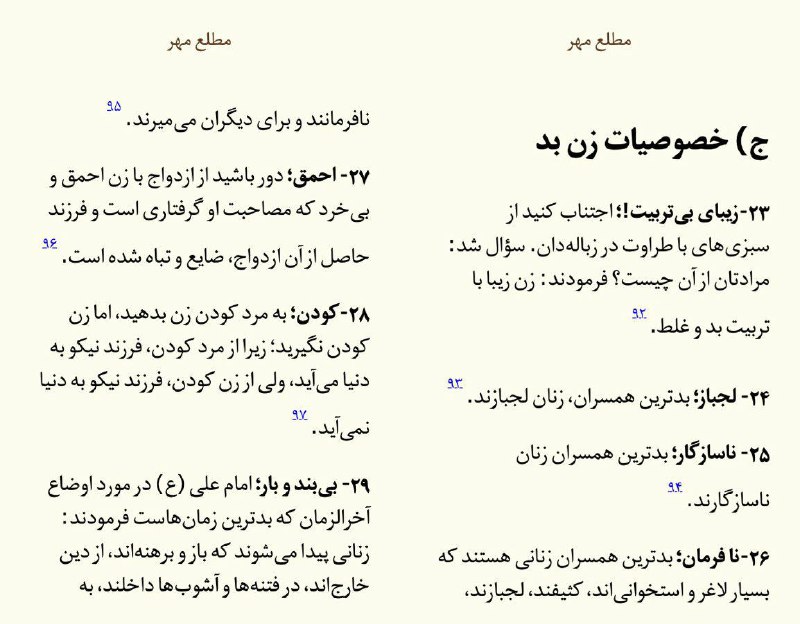 مطلع مهر
ج) خصوصیات زن بد
۲۳-زیبای بی‌تربیت!؛ اجتناب کنید از
سبزی‌های با طراوت در زباله‌دان. سؤال شد:
مرادتان از آن چیست؟ فرمودند: زن زیبا با
تربیت بد و غلط. ۹۲
۲۴- لجباز؛ بدترین همسران، زنان لجبازند. ۹۳
۲۵- ناسازگار؛ بدترین همسران زنان
ناسازگارند. ۹۴
۲۶-نا فرمان؛ بدترین همسران زنانی هستند که
بسیار لاغر و استخوانی‌اند، کثیفند، لجبازند،
مطلع مهر
نافرمانند و برای دیگران می‌میرند. ۹۵
۲۷- احمق؛ دور باشید از ازدواج با زن احمق و
بی‌خرد که مصاحبت او گرفتاری است و فرزند
حاصل از آن ازدواج، ضایع و تباه شده است. ۹۶
۲۸-کودن؛ به مرد کودن زن بدهید، اما زن
کودن نگیرید؛ زیرا از مرد کودن، فرزند نیکو به
دنیا می‌آید، ولی از زن کودن، فرزند نیکو به دنیا
نمی‌آید. ۹۷
۲۹- بی‌بند و بار؛ امام علی (ع) در مورد اوضاع
آخرالزمان که بدترین زمان‌هاست فرمودند:
زنانی پیدا می‌شوند که باز و برهنه‌اند، از دین
خارج‌اند، در فتنه‌ها و آشوب‌ها داخلند، به